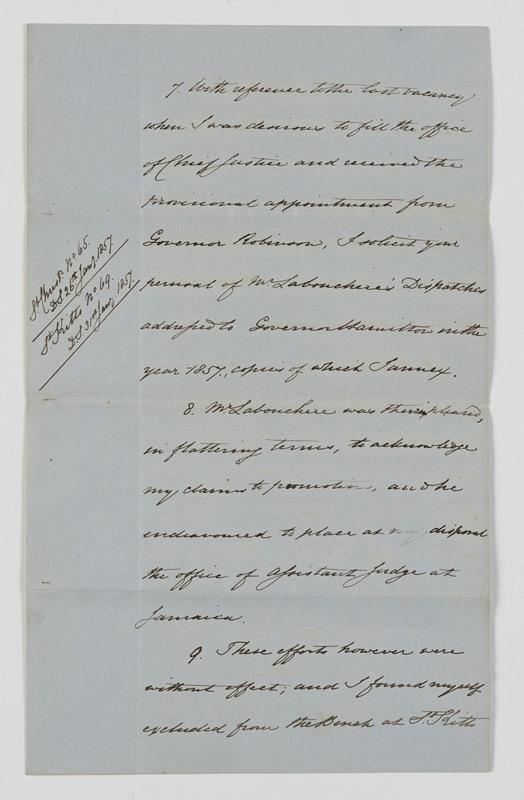 7. With reference to the last vacancy
when I was desirous to fill the office
of Chief Justice and received the
provisional appointment from
Governor Robinson, I solicit your
perusal of Mr Labouchere's Dispatches
addressed to Governor Hamilton in the
year 1857, copies of which I annex.
St Christ. No 65.
DS 26th Jany 1857.
St Kitts No 69.
DS 31st Jany 1857.
8. Mr Labouchere was then pleased,
in flattering terms, to acknowledge
my claims to promotion, and he
endeavoured to place at my disposal
the office of Assistant Judge at
Jamaica.
9. These efforts however were
without effect; and I found myself
excluded from the Bench at St Kitts